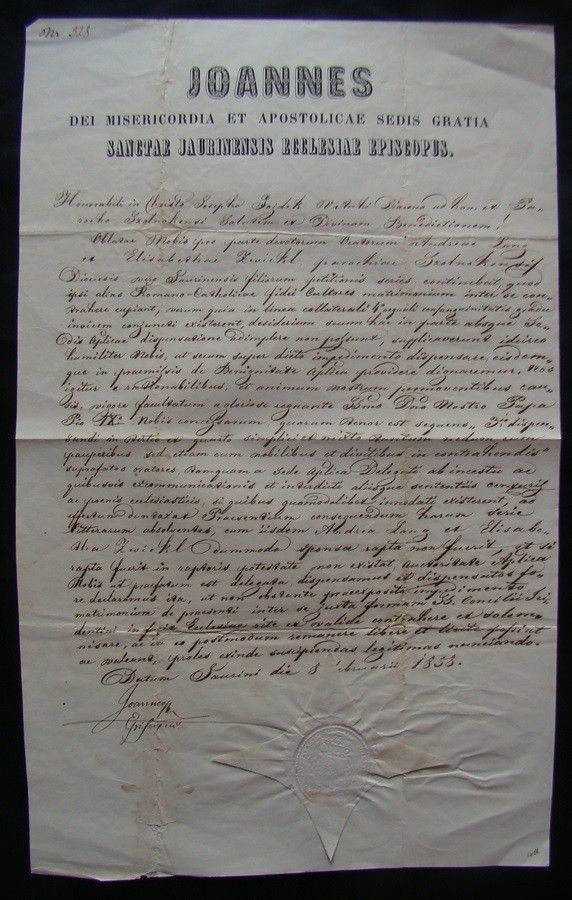 Nr 323
JOANNES
DEI MISERICORDIA ET APOSTOLICAE SEDIS GRATIA
SANCTAE JAURINENSIS ECCLESIAE EPISCOPUS.
Honorabili in Christo Josepho ad hon. et Pa-
rocho Szolnokensi Salutem et Divinam Benedictionem!
Oblatae Nobis pro parte devotorum Oratorum Andreae Lang
et Elisabethae Zwickl parochiae
Diocesis vero Jaurinensis filiorum petitionis series continebat, quod
ipsi alias Romano-Catholicae fidei Cultores matrimonium inter se con-
trahere cupiant, verum quia in linea collaterali 4o aequali consanguinitatis gradu
invicem conjuncti existerent, desiderium suum hac in parte absque Se-
dis Aplicae dispensatione adimplere non possent, supplicaverunt idcirco
humiliter Nobis, ut secum super dicto impedimento dispensare, eisdem-
que in praemissis de Benignitate Aplica providere dignaremur. Nos
igitur e rationabilibus, et animum nostrum permoventibus cau-
sis, vigore facultatum a gloriose regnante Smo Dno Nostro Papa
Pio IX. Nobis concessarum quarum tenor est sequens: 3. dispen-
sandi in tertio et quarto simplici et mixto tantum cum
pauperibus sed etiam cum nobilibus et divitibus in contrahendis
suprafatos oratores, tamquam a Sede Aplica Delegati ab incestus ac
quibusvis excommunicationis et interdicti aliisque sententiis censuris
ac poenis ecclesiasticis, si quibus quomodolibet innodati existerent, ad
effectum duntaxat Praesentium consequendum harum serie
litterarum absolventes, cum iisdem Andrea Lang et Elisabe-
tha Zwickl dummodo sponsa rapta non fuerit, et si
rapta fuerit in raptoris potestate non existat, auctoritate Aplica
Nobis ut praefatum est delegata dispensamus et dispensatos fo-
re declaramus ita, ut non obstante praeexposito impedimento
matrimonium de praesenti inter se juxta formam SS. Concilii Tri-
dentini in facie Ecclesiae rite et valide contrahere et solem-
nisare, ac in eo postmodum remanere libere et licite possint
ac valeant, proles exinde suscipiendas legitimas nunciando.
Datum Jaurini die 8 1858.
Joannes
Episcopus